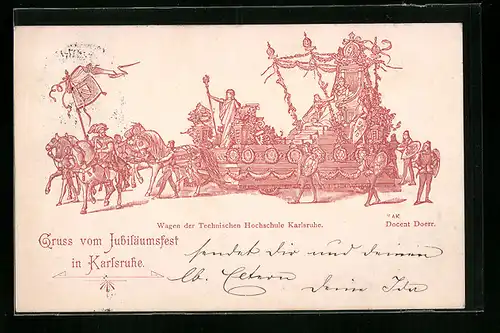 Wagen der Technischen Hochschule Karlsruhe.
Docent Doerr.
Gruss vom Jubiläumsfest
in Karlsruhe.
sendet Dir und deinen
lb. Eltern Deine Ida